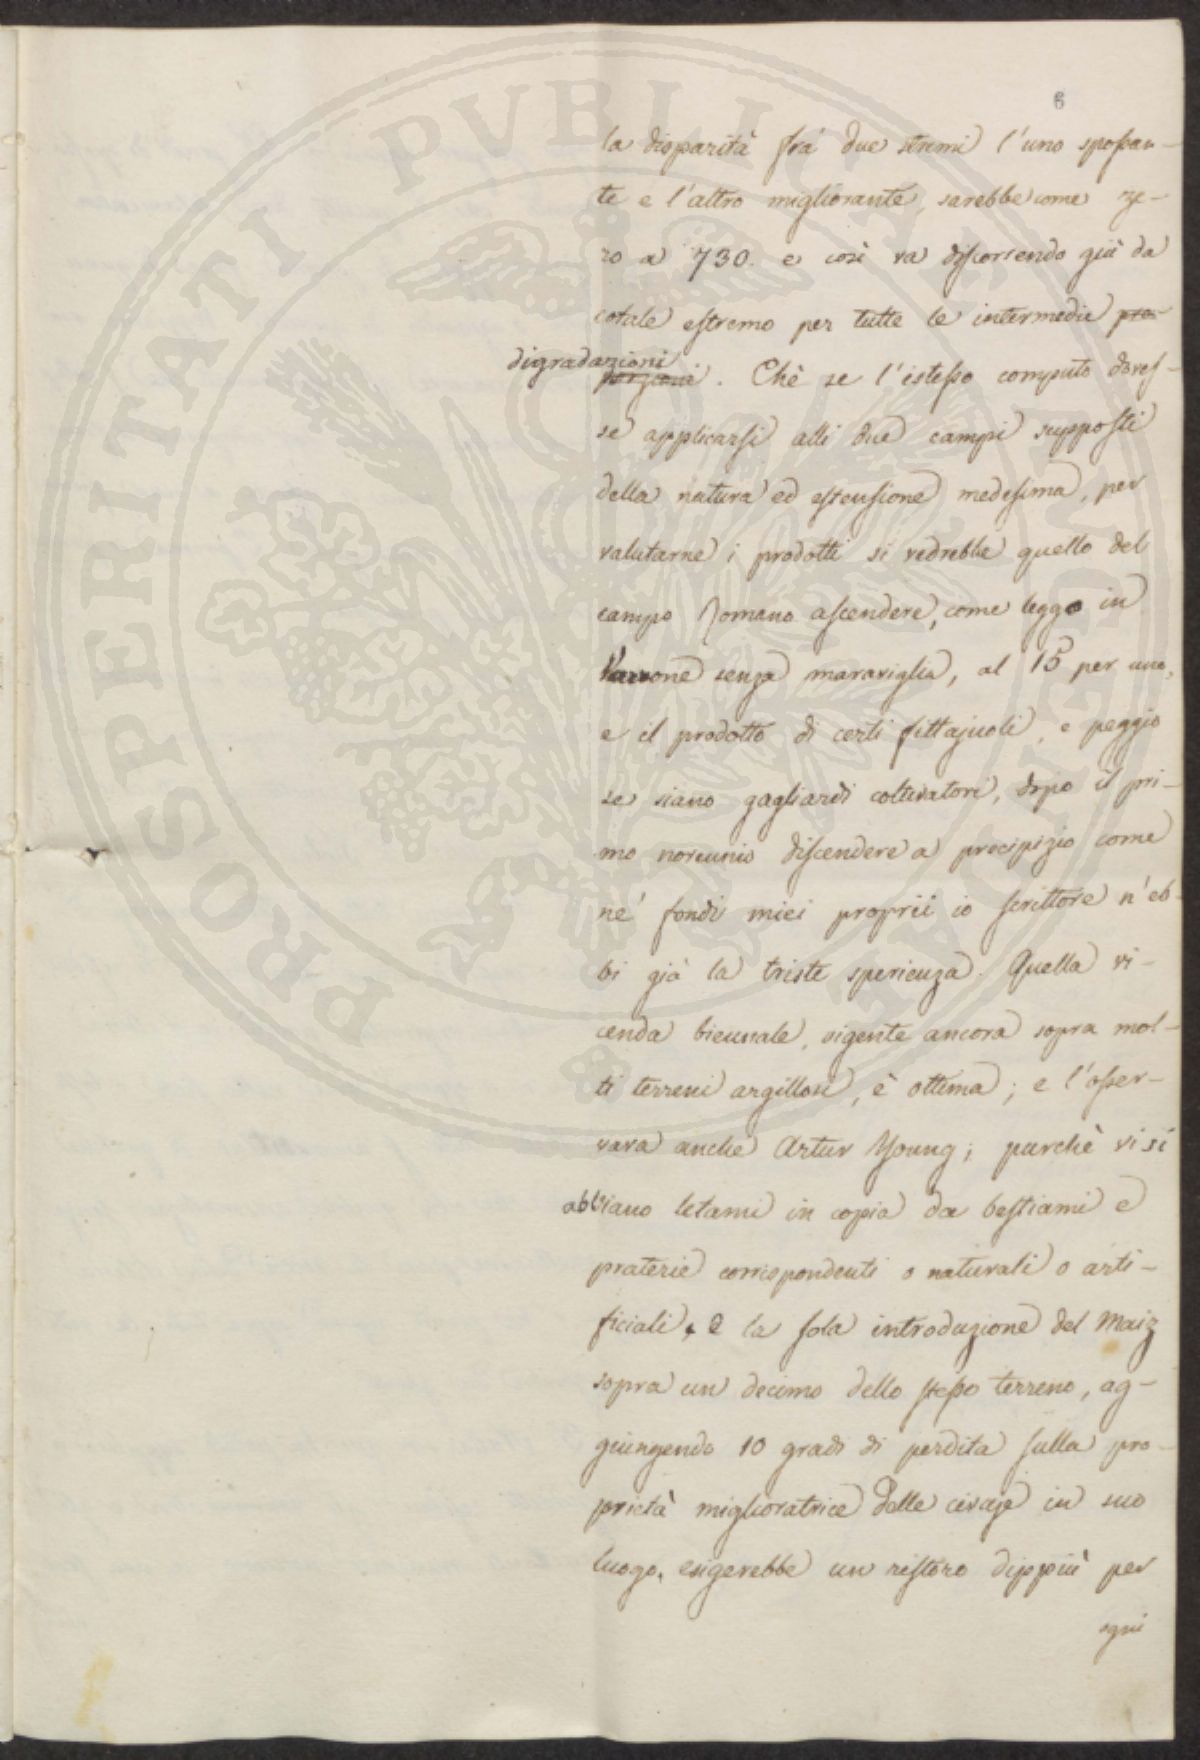 6
la disparità frà due stremi l'uno spossan-
te e l'altro migliorante, sarebbe come ze-
ro a 730. e così va discorrendo giù da
cotale estremo per tutte le intermedie pro-
digradazioni
porzioni. Chè se l'istesso computo doves-
se applicarsi alli due campi supposti
della natura ed estensione medesima, per
valutarne i prodotti si vedrebbe quello del
campo Romano ascendere, come leggo in
Varrone senza maraviglia, al 15 per uno,
e il prodotto di certi fittajuoli, e peggio
se siano gagliardi coltivatori, dopo il pri-
mo novennio discendere a precipizio come
ne' fondi miei proprii io scrittore n'eb-
bi già la triste sperienza. Quella vi-
cenda biennale, vigente ancora sopra mol-
ti terreni argillosi, è ottima; e l'osser-
vava anche Artur Young; purchè vi si
abbiano letami in copia da bestiami e
praterie corrispondenti o naturali o arti-
ficiali, e la sola introduzione del Maiz
sopra un decimo dello stesso terreno, ag-
giungendo 10 gradi di perdita sulla pro-
prietà miglioratrice delle civaje in suo
luogo, esigerebbe un ristoro dippiù per
ogni
PROSPERITATI PVBLICAE AVGENDAE